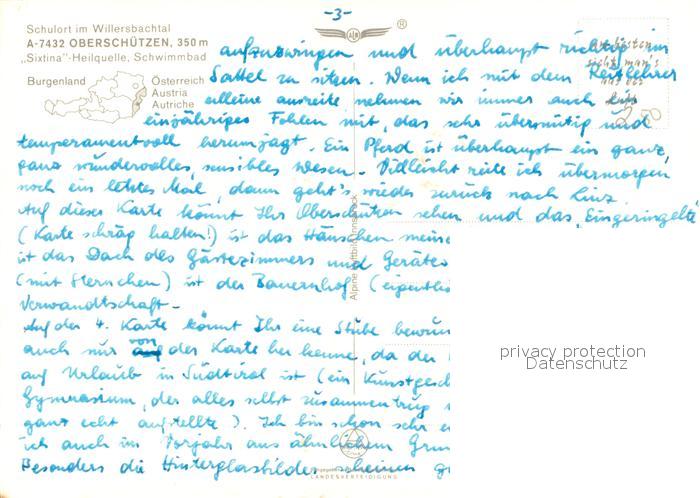 -3-
Schulort im Willersbachtal
A-7432 OBERSCHÜTZEN, 350 m
„Sixtina"-Heilquelle, Schwimmbad
Burgenland
Österreich
Austria
Autriche
®
aufzuzwingen und überhaupt richtig im
Sattel zu sitzen. Wenn ich mit dem Reitlehrer
alleine ausreite, nehmen wir immer auch ein
einjähriges Fohlen mit, das sehr übermütig und
temperamentvoll herumjagt. Ein Pferd ist überhaupt ein ganz,
ganz wundervolles, sensibles Wesen. Vielleicht reite ich übermorgen
noch ein letztes Mal, dann geht's wieder zurück nach Linz.
Auf dieser Karte könnt Ihr Oberschützen sehen und das „Eingeringelte
(Karte schräg halten!) ist das Häuschen meine
ist das Dach des Gästezimmers und Geräte
(mit Sternchen) ist der Bauernhof (eigentlic
Verwandtschaft.
Auf der 4. Karte könnt Ihr eine Stube bewun
auch nur von der Karte her kenne, da der
auf Urlaub in Südtirol ist (ein Kunstgesch
Gymnasium, der alles selbst zusammentrug
ganz echt aufstellte). Ich bin schon sehr
ich auch im Vorjahr aus ähnlichem Grun
Besonders die Hinterglasbilder scheinen g
Alpine Luftbild Innsbruck
LANDESVERTEIDIGUNG
privacy protection
Datenschutz